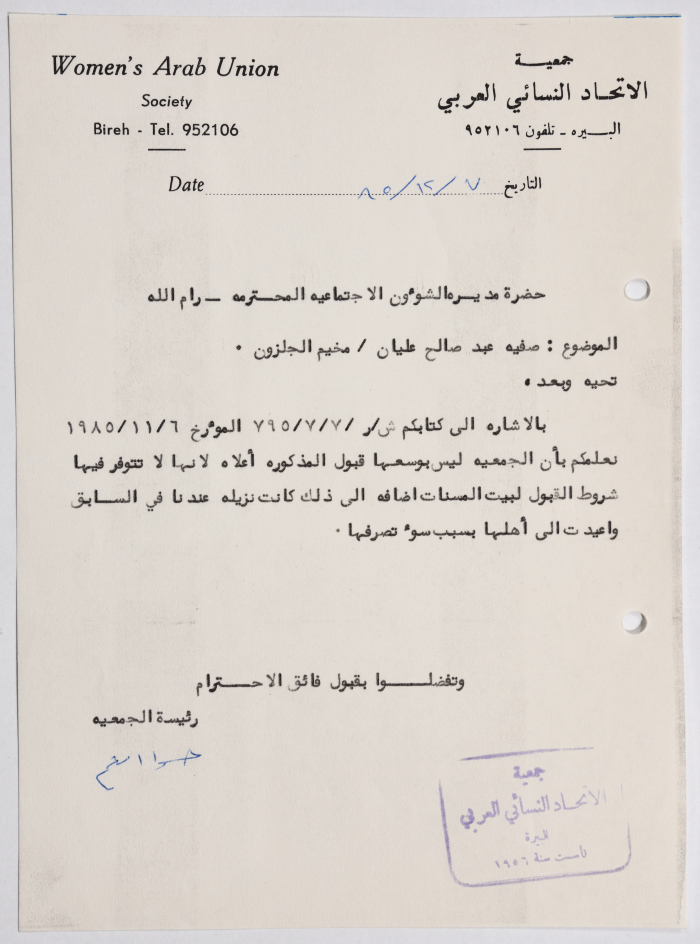 Women's Arab Union
Society
Bireh - Tel. 952106
جمعيـــة
الاتحـاد النسائي العربي
البـيره - تلفون ٩٥٢١٠٦
Date
التاريخ ٧ / ١٢ / ٨٥
حضرة مديـره الشوؤون الاجتماعيه المحـترمه — رام الله
الموضوع : صفيه عبد صالح عليان / مخيم الجلزون ٠
تحيه وبعد ،
بالاشاره الى كتابكم ش/ر /٧٩٥/٧/٧ الموؤرخ ١٩٨٥/١١/٦
نعلمكم بأن الجمعيه ليس بوسعها قبول المذكوره أعلاه لانها لا تتوفر فيها
شروط القبول لبيت المسنات اضافه الى ذلك كانت نزيله عندنا في الســابق
واعيدت الى أهلها بسبب سوء تصرفها ٠
وتفضلـــوا بقبول فائق الاحـــترام
رئيسة الجمعيه
جمعية
الاتحـاد النسائي العربي
البيرة
تأسست سنة ١٩٥٦